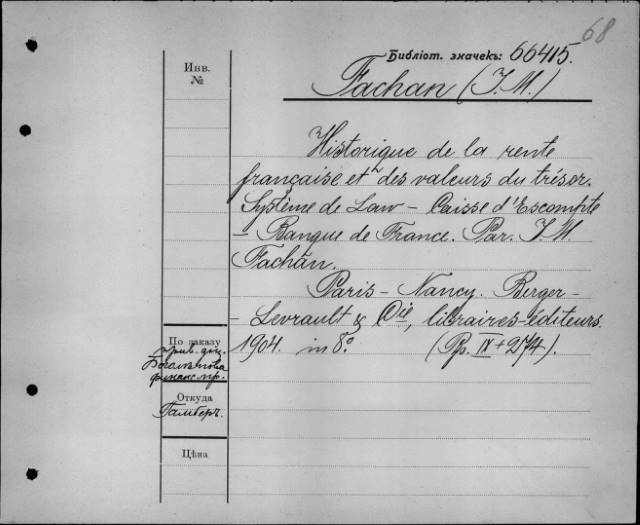 68
Библіот. значекъ: 66415.
Инв.
№
Fachan (J. M.)
Historique de la rente
française et des valeurs du trésor.
Système de Law – Caisse d'Escompte
– Banque de France. Par J. M.
Fachan.
Paris – Nancy. Berger –
– Levrault & Cie, libraires-éditeurs.
1904. in 8º. (Pp. IV + 274).
По заказу
прив. доц.
Боголѣпова
финанс. пр.
Откуда
Гамберъ.
Цѣна